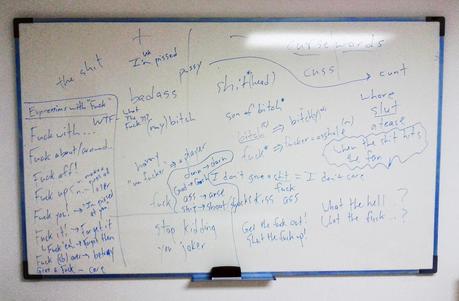 the shit
+
I'm pissed
pussy
curse words
cuss
cunt
badass
shit(head)
whore
slut
a tease
Expressions with "Fuck"
WTF = What The Fuck ?!?
(my) bitch
son of bitch*
bitch(y)
Fuck with...
Fuck about/around
Fuck off!
Fuck up
Fuck you! → I'm pissed at you
Fuck it! → forget it
Fuck 'em → forget them
Fuck (sb) over → betray
Give a fuck ~ care
horny
"un fucker" → a player
fuck* ⇒ fucker = asshole (n)
When the shit hits the fan
damn → darn
God → Gosh
ass → arse
shit → shoot
fuck
I don't give a shit = I don't care
fuck
Kiss ass
stop kidding
you joker
Get the fuck out!
Shut the fuck up!
What the hell...?
What the fuck...?